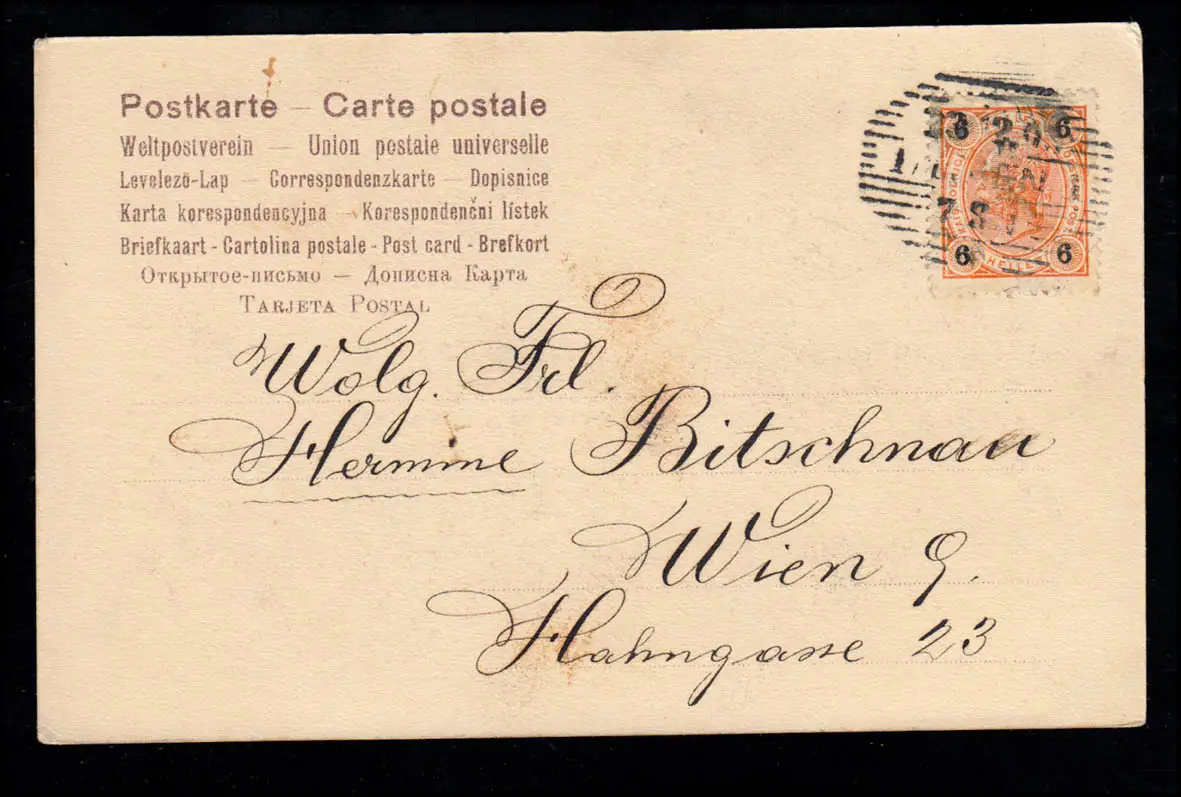 Postkarte – Carte postale
Weltpostverein – Union postale universelle
Levelezõ-Lap – Correspondenzkarte – Dopisnice
Karta korespondencyjna – Korespondenčni lístek
Briefkaart - Cartolina postale - Post card - Brefkort
Открытое-письмо – Дописна Карта
Tarjeta Postal
6 6
6 HELLER 6
Wolg. Frl.
Hermine Bitschnau
Wien 9.
Hahngasse 23